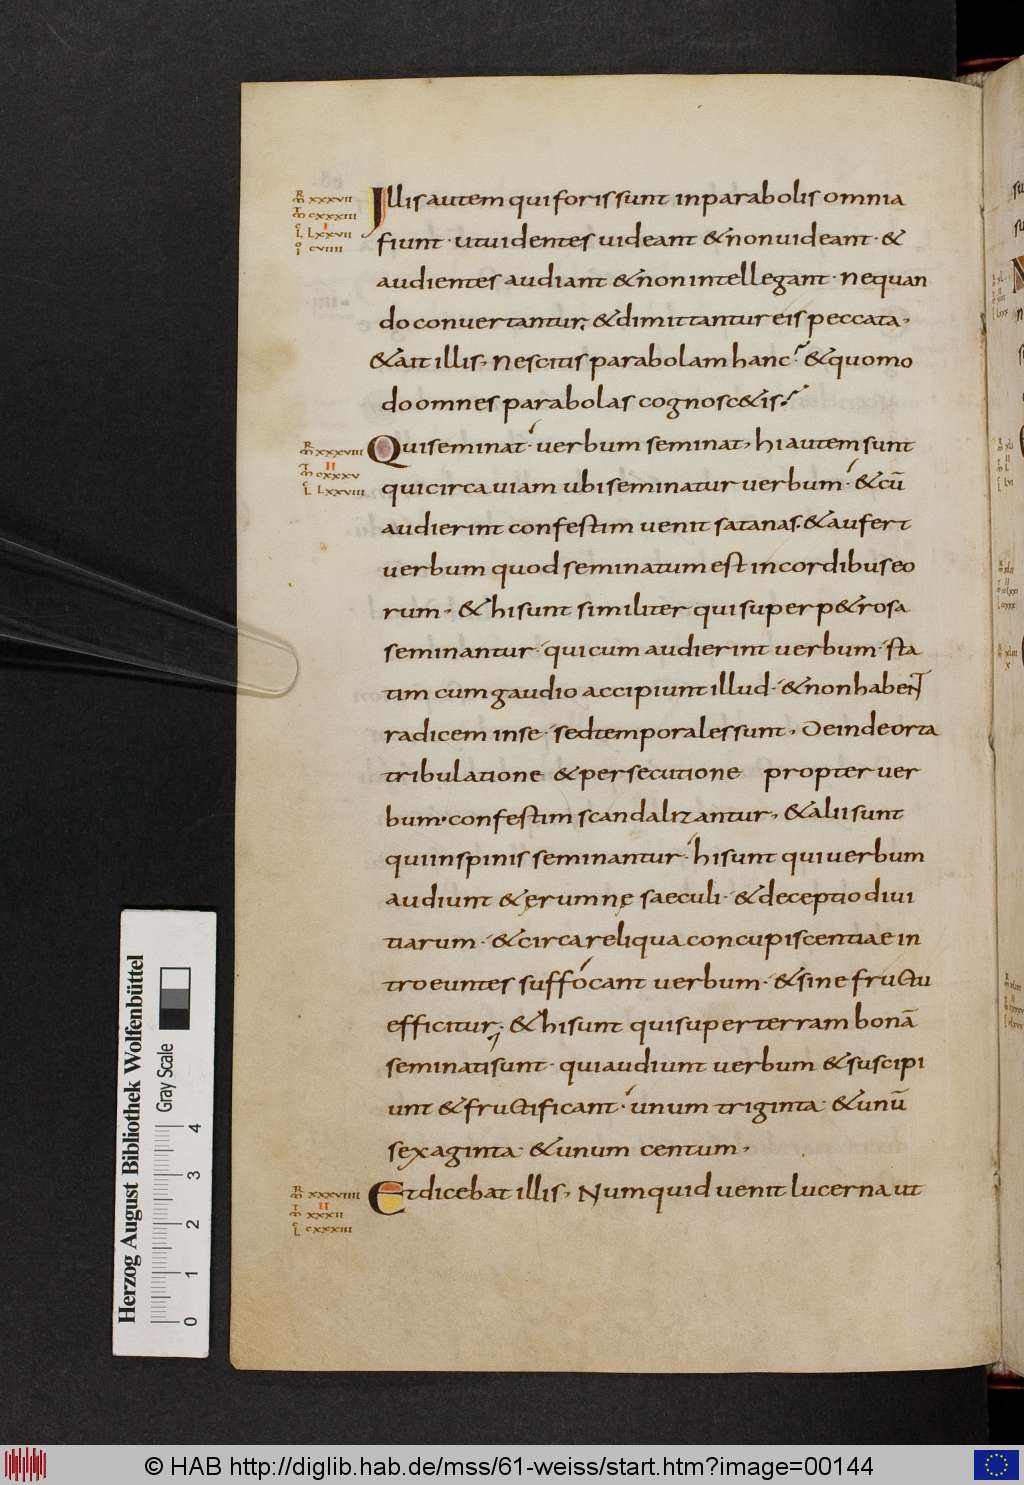 Illis autem qui foris sunt in parabolis omnia
fiunt · ut uidentes uideant & non uideant · &
audientes audiant & non intellegant · Nequan
do conuertantur, & dimittantur eis peccata,
& ait illis, Nescitis parabolam hanc · & quomo
do omnes parabolas cognosc&is?
Qui seminat · uerbum seminat, hi autem sunt
qui circa uiam ubi seminatur uerbum · & cū
audierint confestim uenit satanas. & aufert
uerbum quod seminatum est in cordibus eo
rum, & hi sunt similiter qui super p&rosa
seminantur · qui cum audierint uerbum · sta
tim cum gaudio accipiunt illud · & non habent
radicem in se · sed temporales sunt, Deinde orta
tribulatione & persecutione propter uer
bum · confestim scandalizantur, & alii sunt
qui in spinis seminantur · hi sunt qui uerbum
audiunt & ęrumnę saeculi · & deceptio diui
tiarum · & circa reliqua concupiscentiae in
troeuntes suffocant uerbum · & sine fructu
efficitur · & hi sunt qui super terram bonā
seminati sunt · qui audiunt uerbum & suscipi
unt & fructificant · unum triginta · & unū
sexaginta · & unum centum,
Et dicebat illis, Numquid uenit lucerna ut
R xxxvii
m cxxxiii
I
L Lxxvii
io cviiii
R m xxxviii
II
m cxxxv
L Lxxviii
R m xxxviiii
II
m xxxii
L cxxxiii
Herzog August Bibliothek Wolfenbüttel
Gray Scale
0 1 2 3 4
© HAB http://diglib.hab.de/mss/61-weiss/start.htm?image=00144